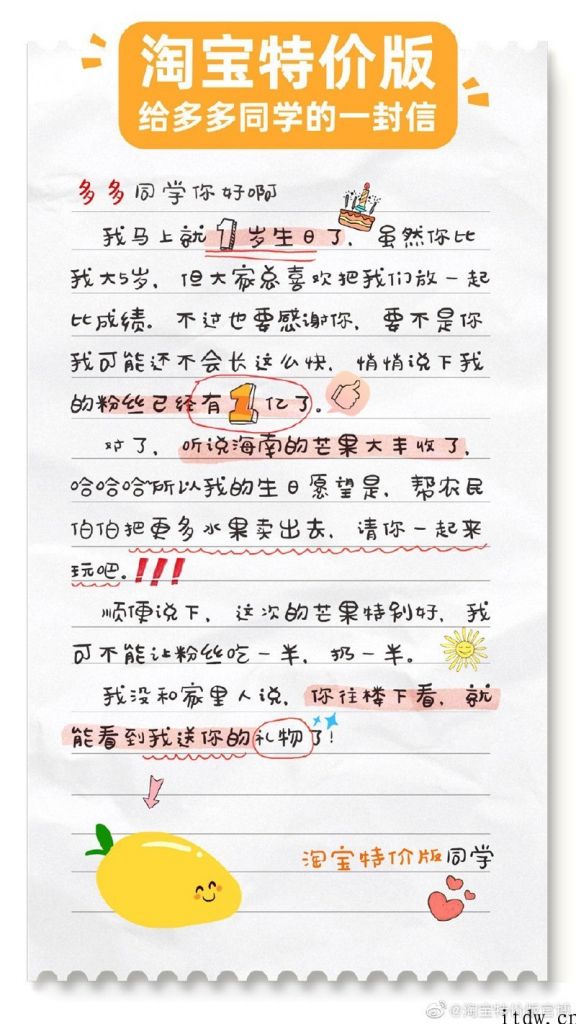 淘宝特价版
给多多同学的一封信
多多同学你好啊
我马上就1岁生日了，虽然你比
我大5岁，但大家总喜欢把我们放一起
比成绩。不过也要感谢你，要不是你
我可能还不会长这么快，悄悄说下我
的粉丝已经有1亿了。
对了，听说海南的芒果大丰收了，
哈哈哈所以我的生日愿望是，帮农民
伯伯把更多水果卖出去，请你一起来
玩吧。!!!
顺便说下，这次的芒果特别好，我
可不能让粉丝吃一半，扔一半。
我没和家里人说，你往楼下看，就
能看到我送你的礼物了！
淘宝特价版同学
@淘宝特价版官博
itdw.cn